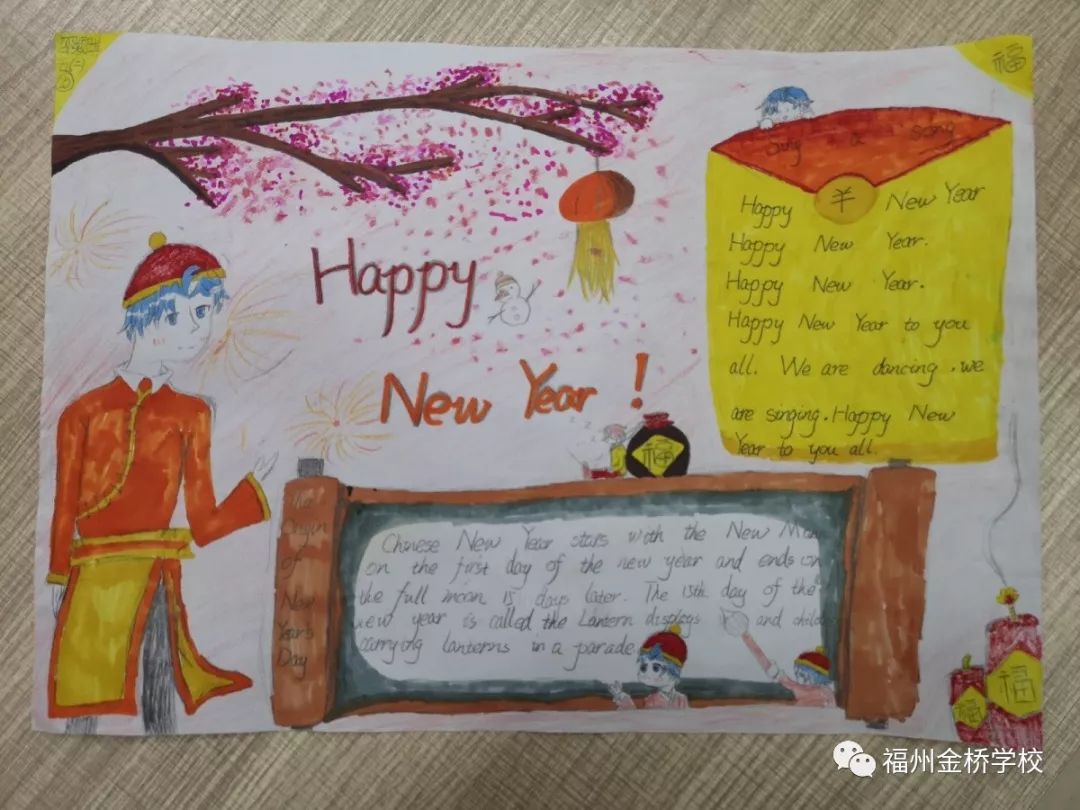 福
Sing a song
Happy 羊 New Year
Happy New Year.
Happy New Year.
Happy New Year to you
all. We are dancing, we
are singing. Happy New
Year to you all.
Happy
New Year!
福
The
Origin
of
New
Year's
Day
Chinese New Year stars with the New
on the first day of the new year and ends on
the full moon 15 days later. The 15th day of the
new year is called the Lantern displays and
carrying lanterns in a parade
福
福
福州金桥学校